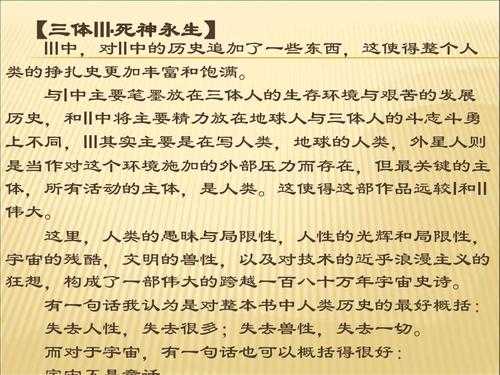 【三体III·死神永生】
III中，对II中的历史追加了一些东西，这使得整个人
类的挣扎史更加丰富和饱满。
与I中主要笔墨放在三体人的生存环境与艰苦的发展
历史，和II中将主要精力放在地球人与三体人的斗志斗勇
上不同，III其实主要是在写人类，地球的人类，外星人则
是当作对这个环境施加的外部压力而存在，但最关键的主
体，所有活动的主体，是人类。这使得这部作品远较I和II
伟大。
这里，人类的愚昧与局限性，人性的光辉和局限性，
宇宙的残酷，文明的兽性，以及对技术的近乎浪漫主义的
狂想，构成了一部伟大的跨越一百八十万年宇宙史诗。
有一句话我认为是对整本书中人类历史的最好概括：
失去人性，失去很多；失去兽性，失去一切。
而对于宇宙，有一句话也可以概括得很好：
宇宙不是童话